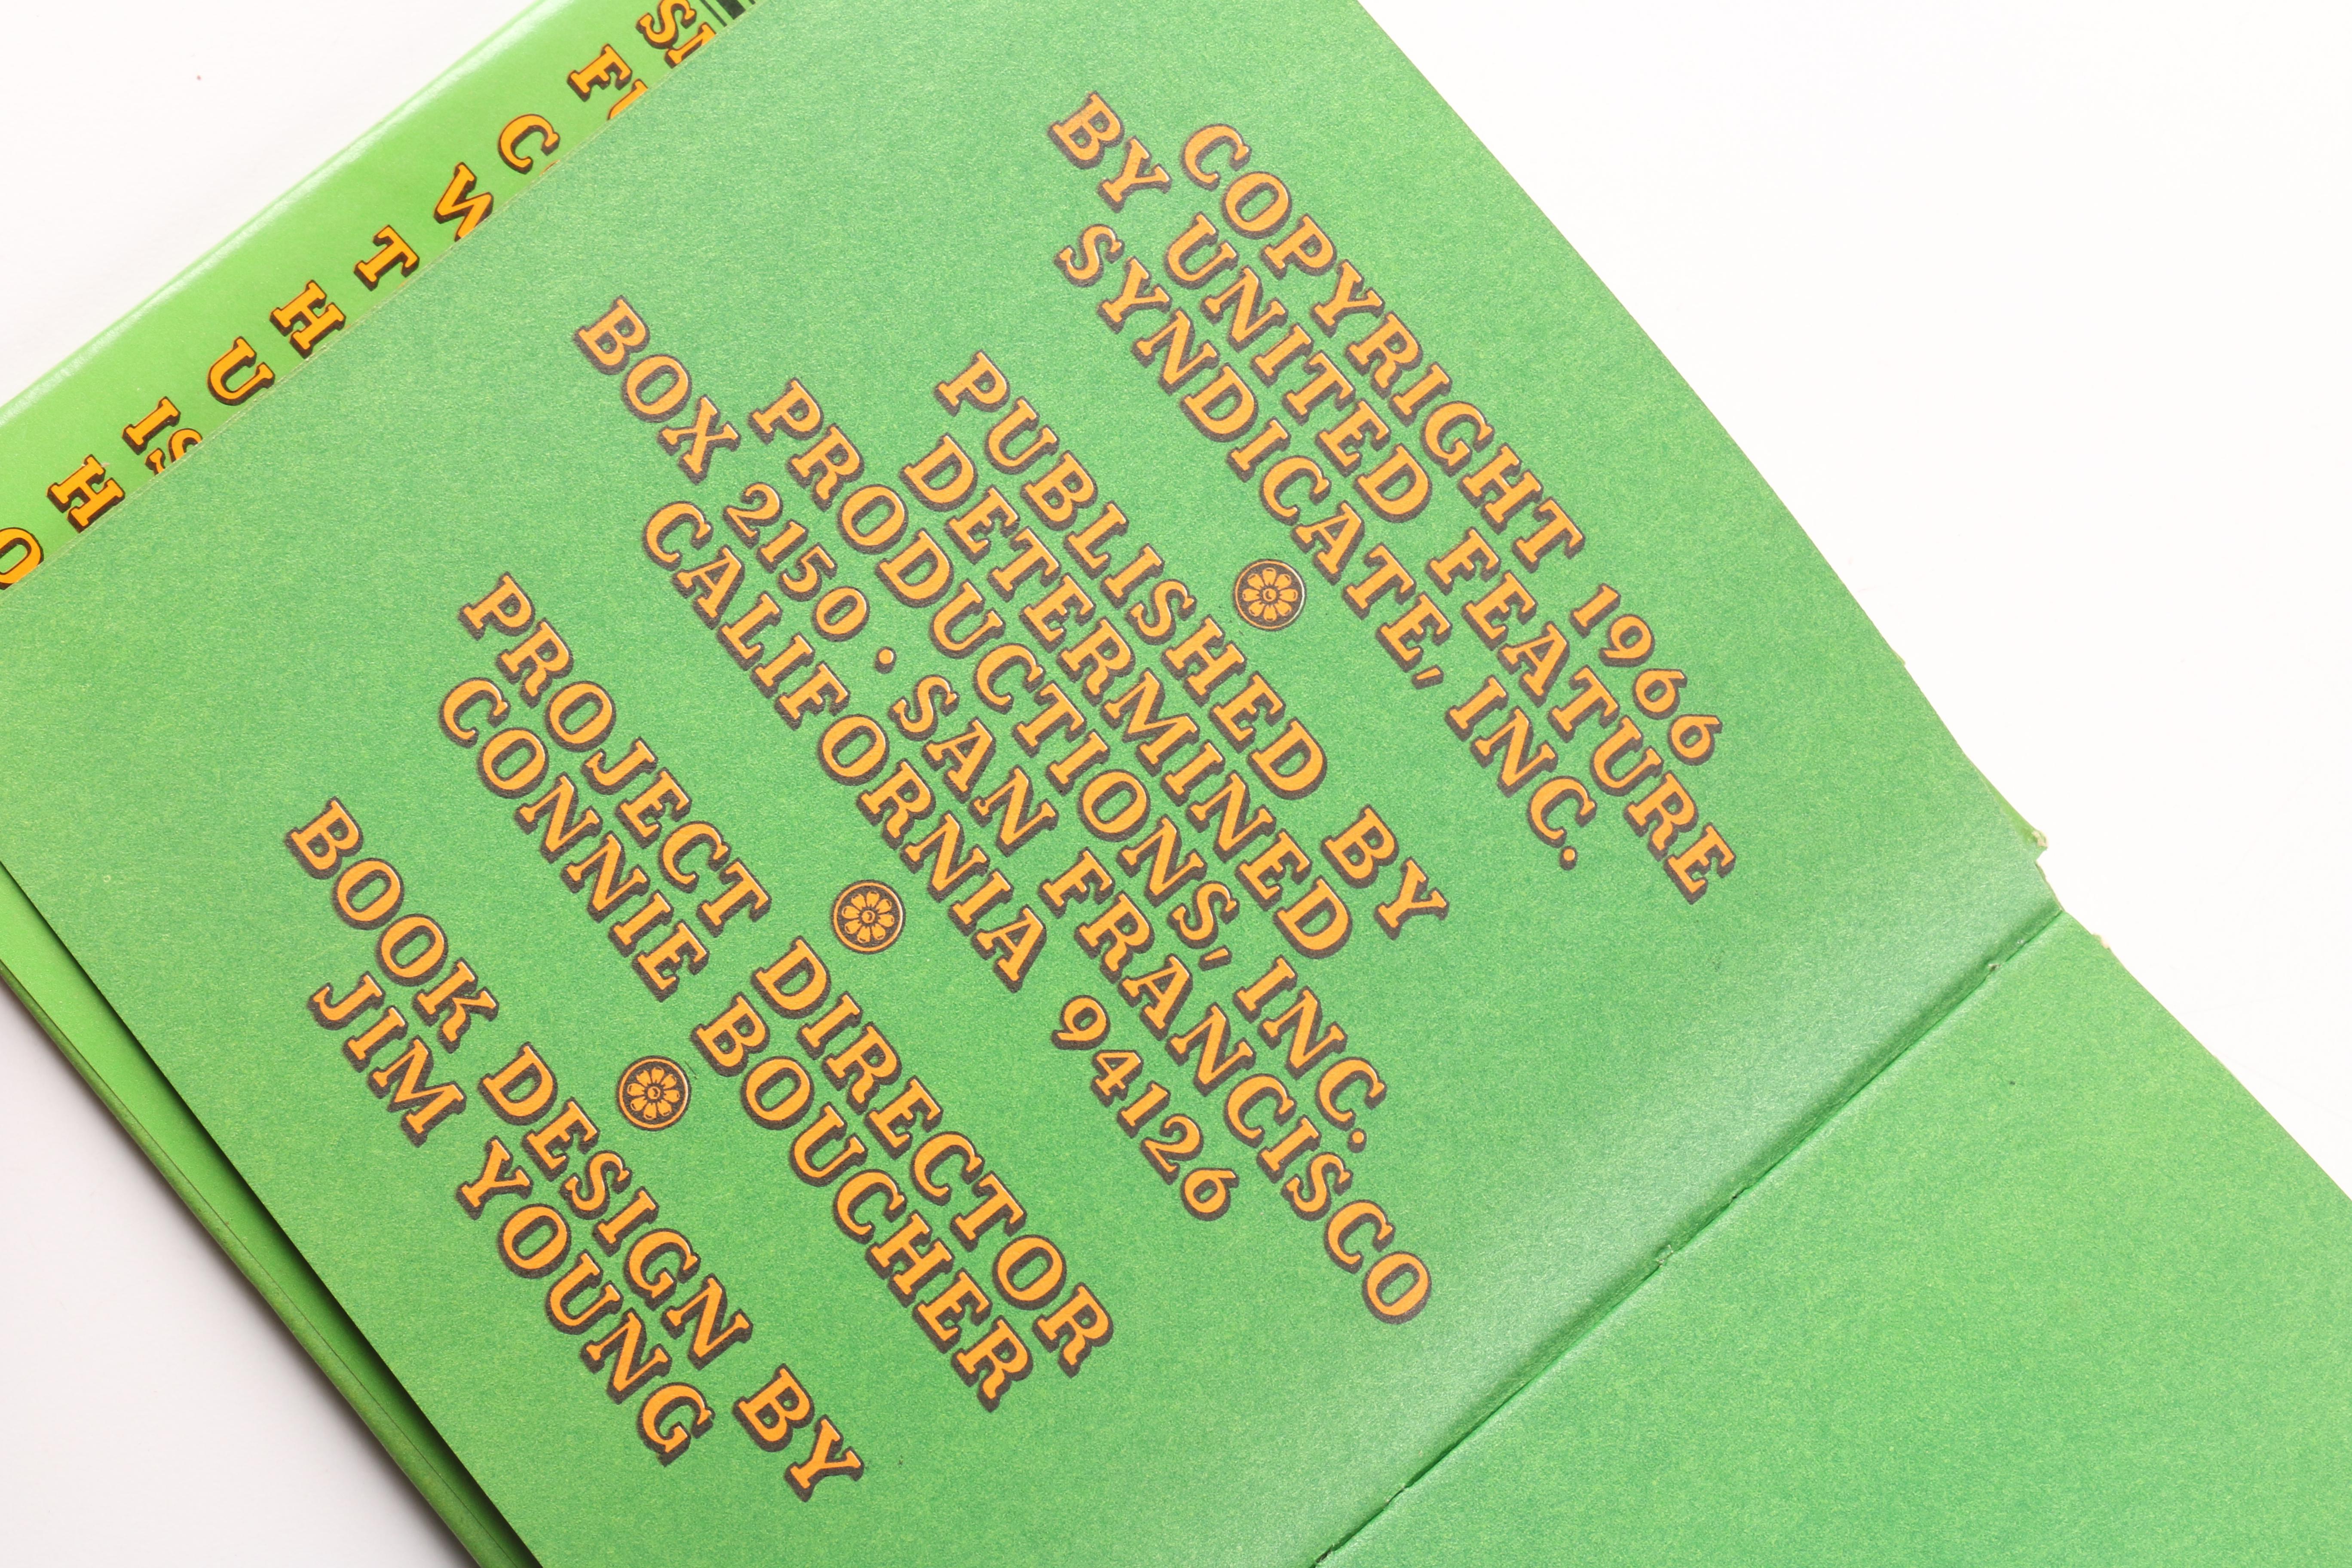 COPYRIGHT 1966
BY UNITED FEATURE
SYNDICATE, INC.
PUBLISHED BY
DETERMINED
PRODUCTIONS, INC.
BOX 2150 · SAN FRANCISCO
CALIFORNIA 94126
PROJECT DIRECTOR
CONNIE BOUCHER
BOOK DESIGN BY
JIM YOUNG